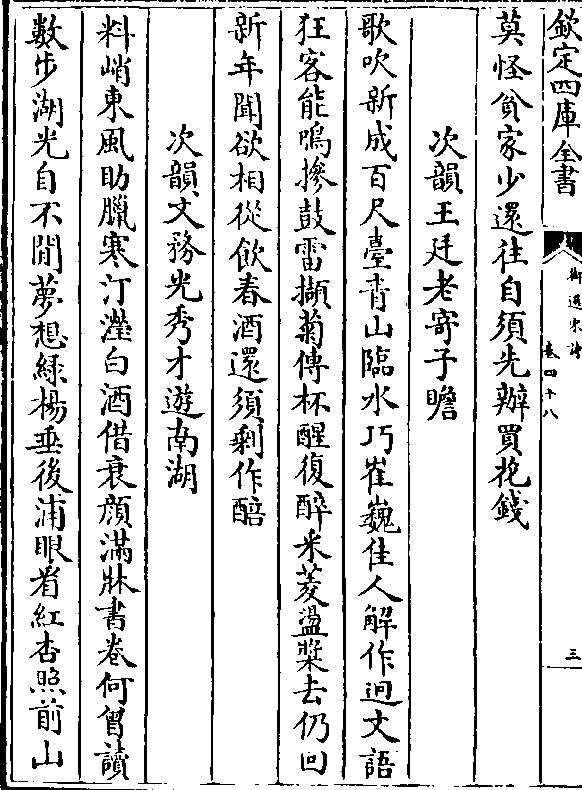 欽定四庫全書
御選宋詩
卷四十八
三
莫怪貧家少還往自須先辦買挽錢
次韻王廷老寄子瞻
歌吹新成百尺臺青山臨水巧崔巍佳人解作迥文語
狂客能鳴摻鼓雷擷菊傳杯醒復醉采菱盪槳去仍回
新年聞欲相從飲春酒還須剩作醅
次韻文務光秀才遊南湖
料峭東風助臘寒汀瀅白酒借衰顔滿牀書卷何曾讀
數步湖光自不閒夢想緑楊垂後浦眼看紅杏照前山